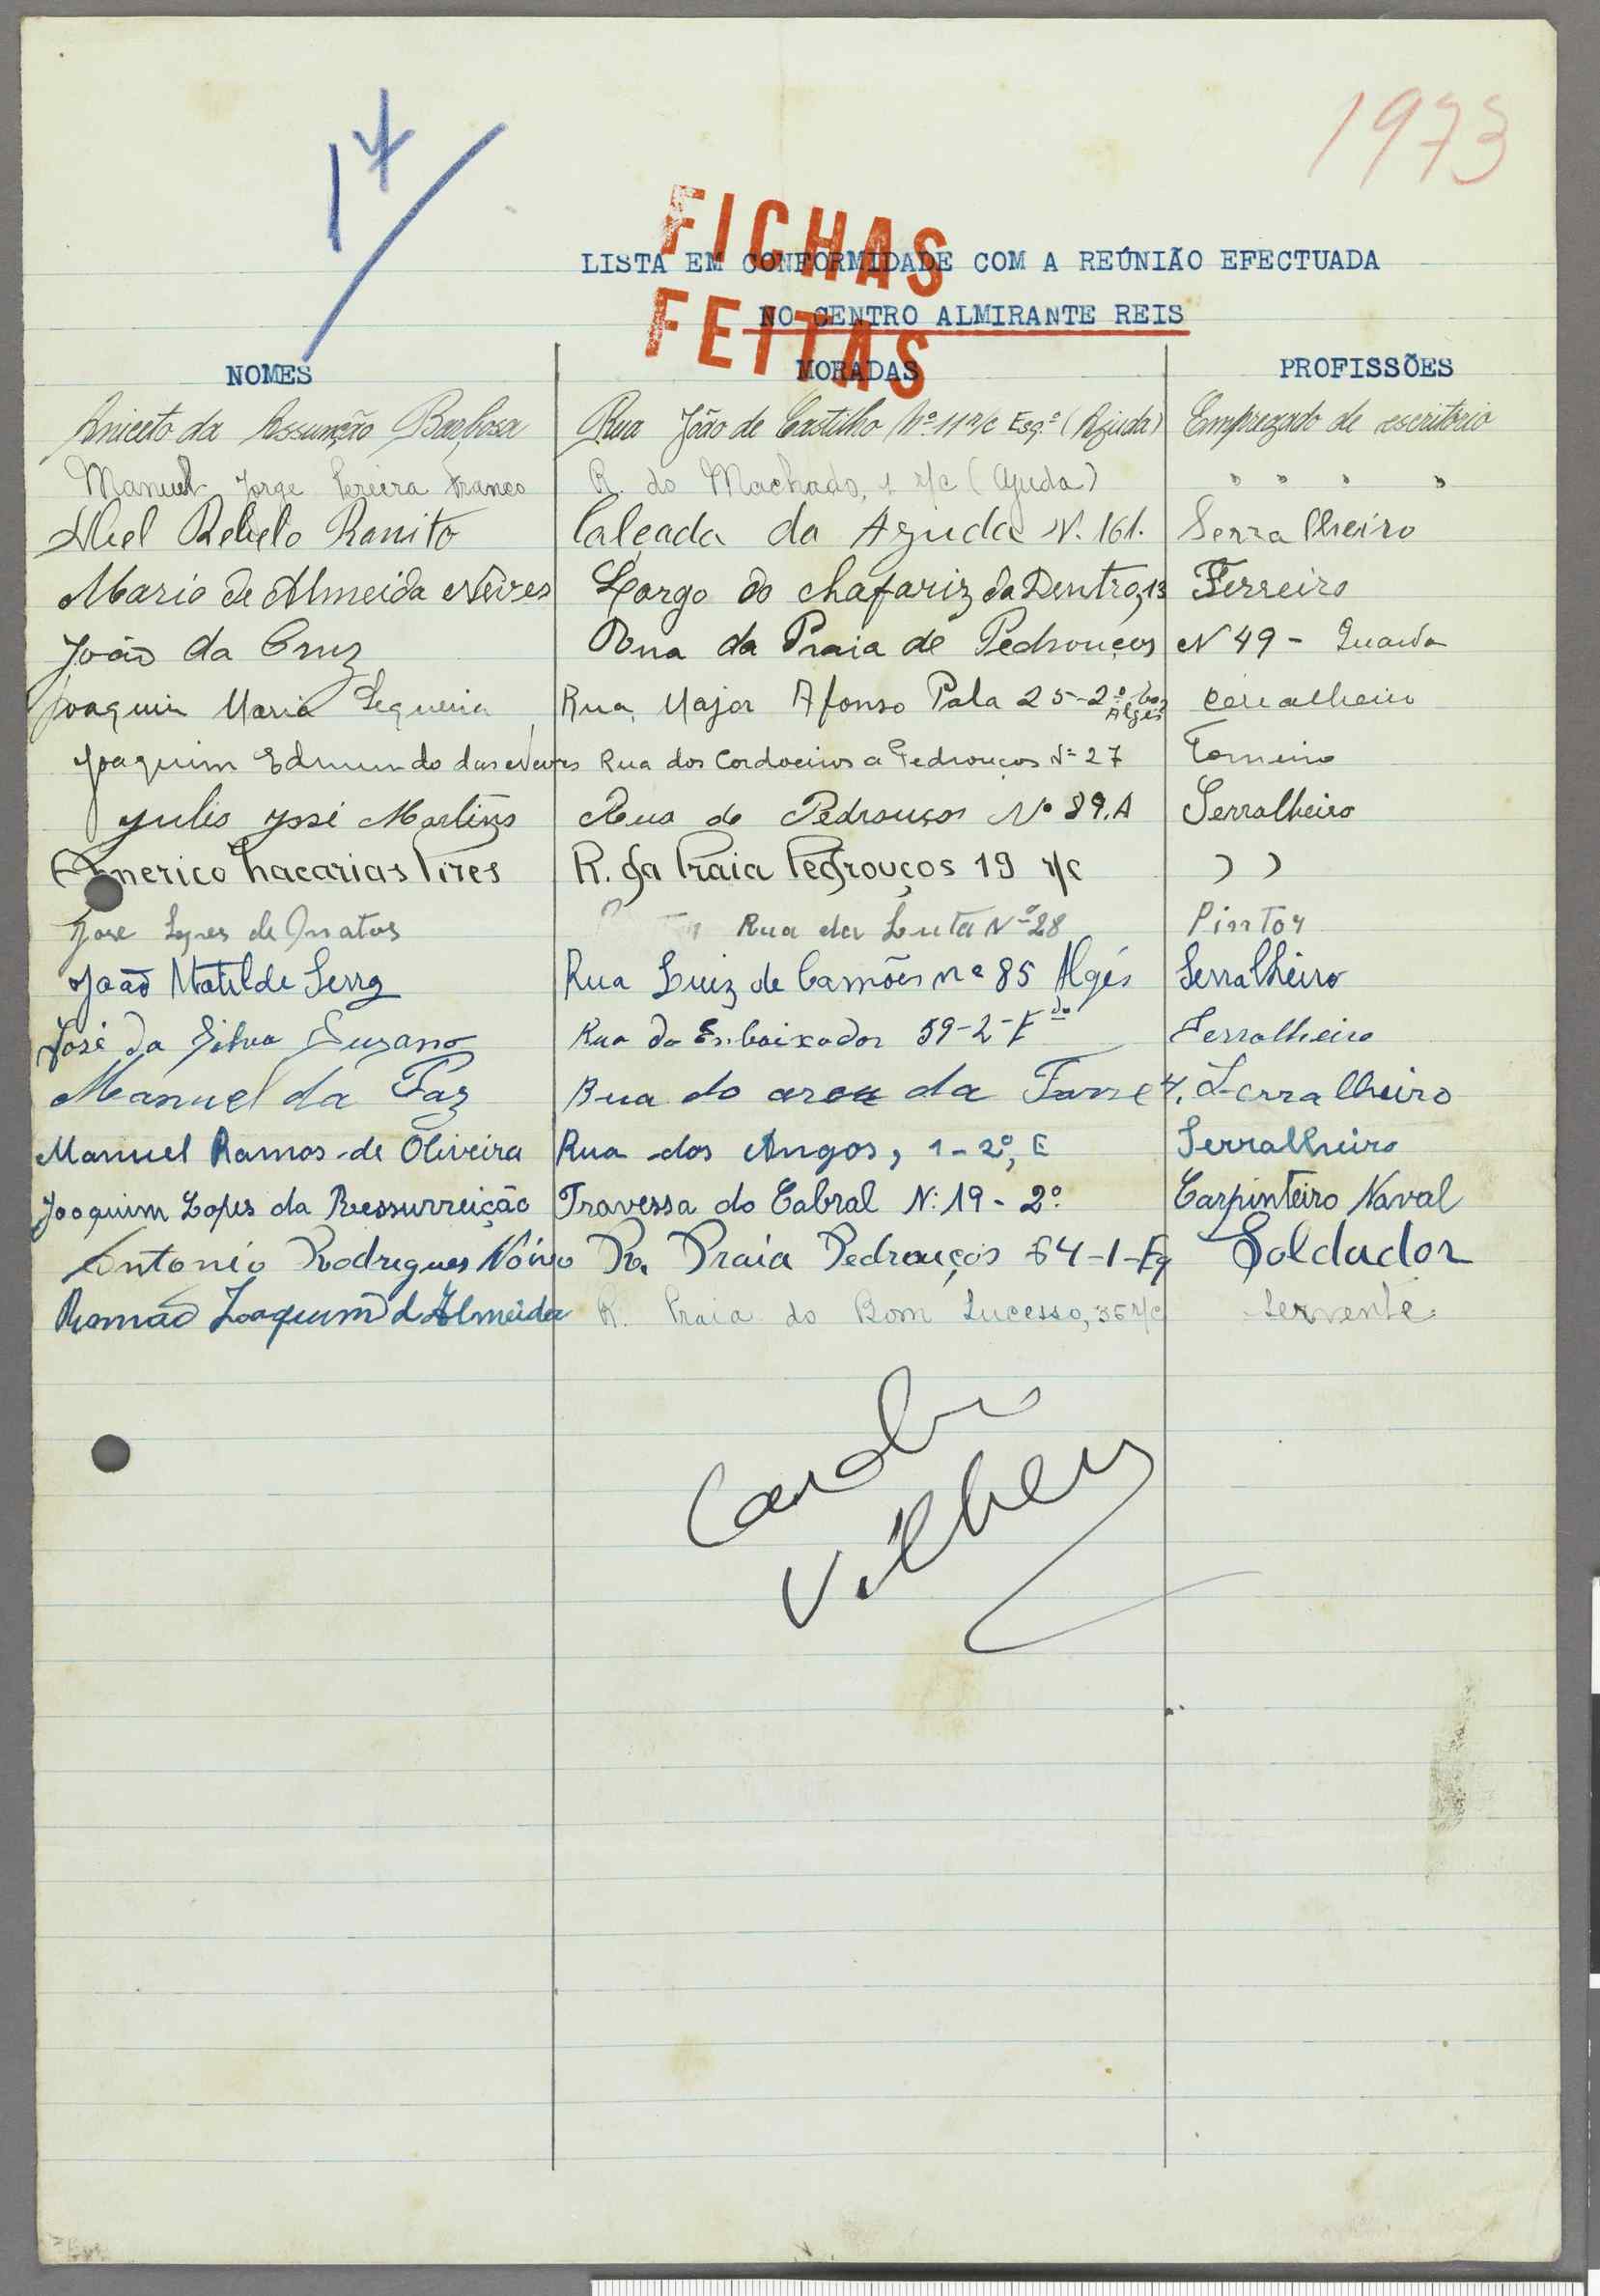 14
1973
FICHAS
FEITAS
LISTA EM CONFORMIDADE COM A REÚNIÃO EFECTUADA
NO CENTRO ALMIRANTE REIS
NOMES MORADAS PROFISSÕES
Aniceto da Assunção Barbosa Rua João de Castilho Nº 11 r/c Esq.º (Ajuda) Empregado de escritorio
Manuel Jorge Pereira Franco R. do Machado, 1 r/c (Ajuda) " " " "
Abel Rebelo Ranito Calçada da Ajuda N. 161. Serralheiro
Mario de Almeida Neves Largo do chafariz da Dentro, 13 Ferreiro
João da Cruz Rua da Praia de Pedrouços Nº 49 - Guarda
Joaquim Maria Sequeira Rua Major Afonso Pala 25-2º Algés
Joaquim Edmundo das Neves Rua dos Cordoeiros a Pedrouços Nº 27 Torneiro
Julio José Martins Rua de Pedrouços Nº 89.A Serralheiro
Americo Zacarias Pires R. da Praia Pedrouços 19 r/c " "
José Lopes de Matos Rua da Luta Nº 28 Pintor
João Matilde Serra Rua Luiz de Camões nº 85 Algés Serralheiro
José da Silva Suzano Rua da Enbaixador 59-2-E Serralheiro
Manuel da Paz Rua do arco da Torre 4. Serralheiro
Manuel Ramos de Oliveira Rua dos Anjos, 1-2º, E Serralheiro
Joaquim Lopes da Ressurreição Travessa do Cabral N: 19 - 2º. Carpinteiro Naval
Antonio Rodrigues Nóivo R. Praia Pedrouços 64-1-Eq Soldador
Romão Joaquim d'Almeida R. Praia do Bom Sucesso, 35 r/c Servente
Vilhena